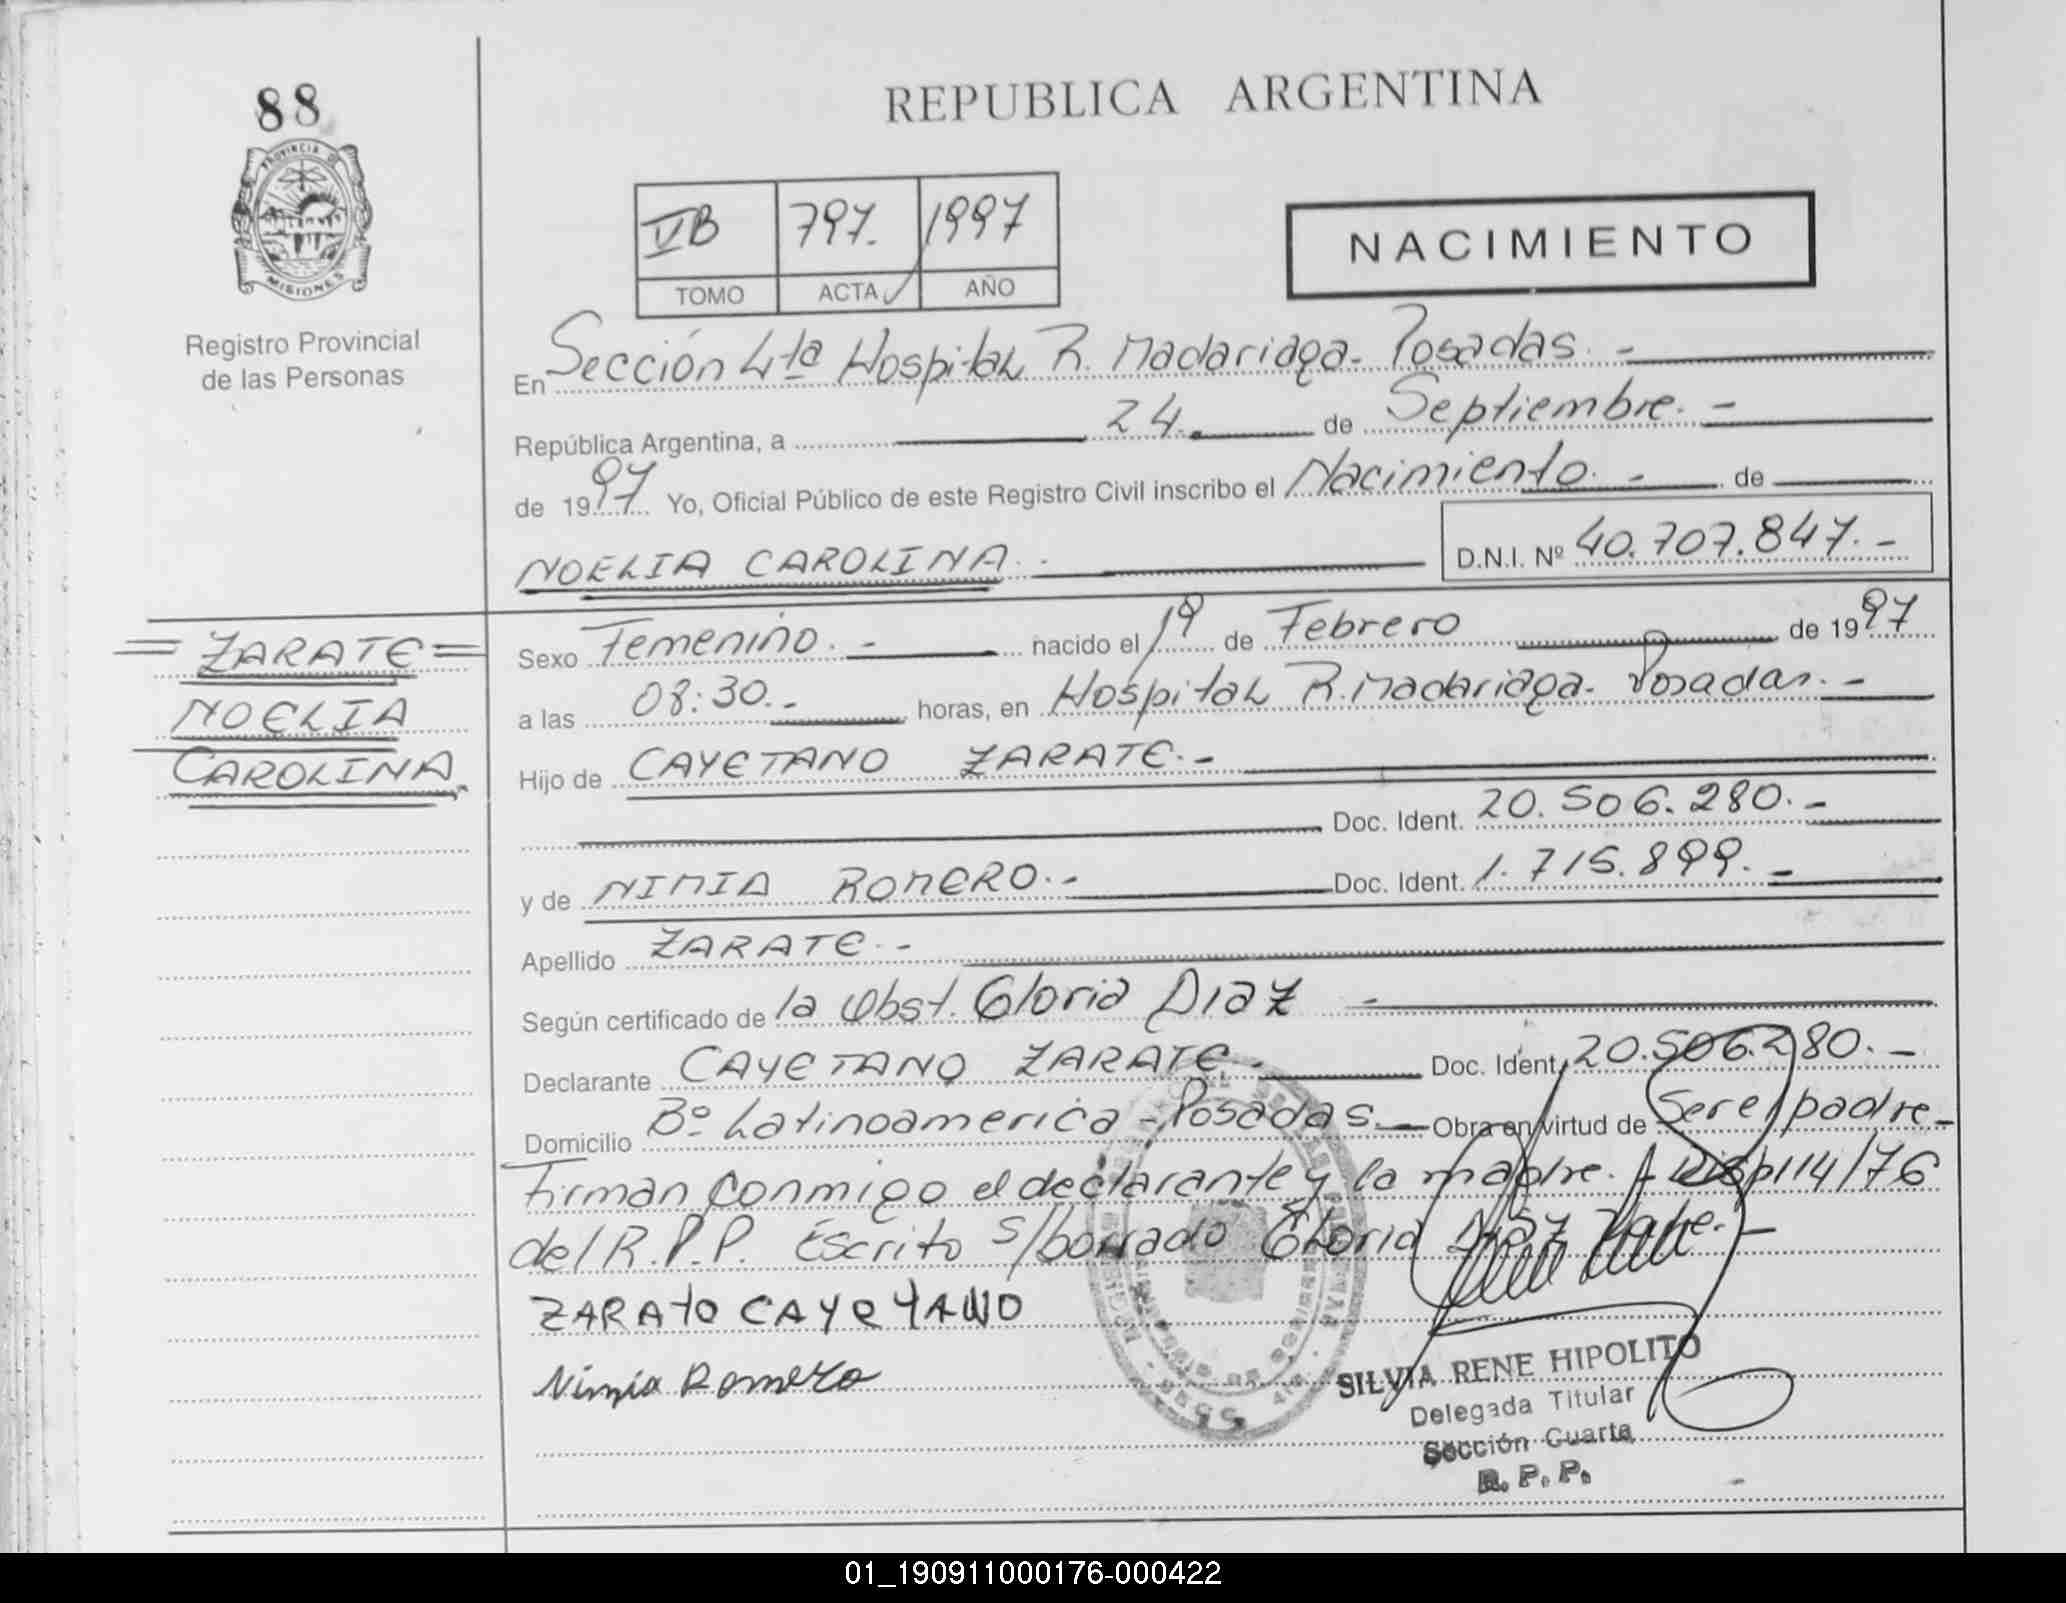 88
REPUBLICA ARGENTINA
PROVINCIA DE MISIONES
Registro Provincial
de las Personas
VB 797. 1997
TOMO ACTA AÑO
NACIMIENTO
En Sección 4ta Hospital R. Madariaga - Posadas. -
República Argentina, a 24. de Septiembre. -
de 1997 Yo, Oficial Público de este Registro Civil inscribo el Nacimiento. - de
NOELIA CAROLINA. - D.N.I. Nº 40.707.847. -
= ZARATE =
NOELIA
CAROLINA
Sexo Femenino. - nacido el 19 de Febrero de 1997
a las 08:30. - horas, en Hospital R. Madariaga - Posadas. -
Hijo de CAYETANO ZARATE. -
Doc. Ident. 20.506.280. -
y de NIMIA ROMERO. - Doc. Ident. 1.715.899. -
Apellido ZARATE. -
Según certificado de la Obst. Gloria Diaz -
Declarante CAYETANO ZARATE. Doc. Ident. 20.506.280. -
Domicilio Bº Latinoamerica - Posadas. - Obra en virtud de Ser el padre -
Firman conmigo el declarante y la madre. Disp 114/76
del R.P.P. Escrito s/borrado Gloria Diaz Vale. -
ZARATE CAYETANO
Nimia Romero
SILVIA RENE HIPOLITO
Delegada Titular
Sección Cuarta
R. P. P.
01_190911000176-000422